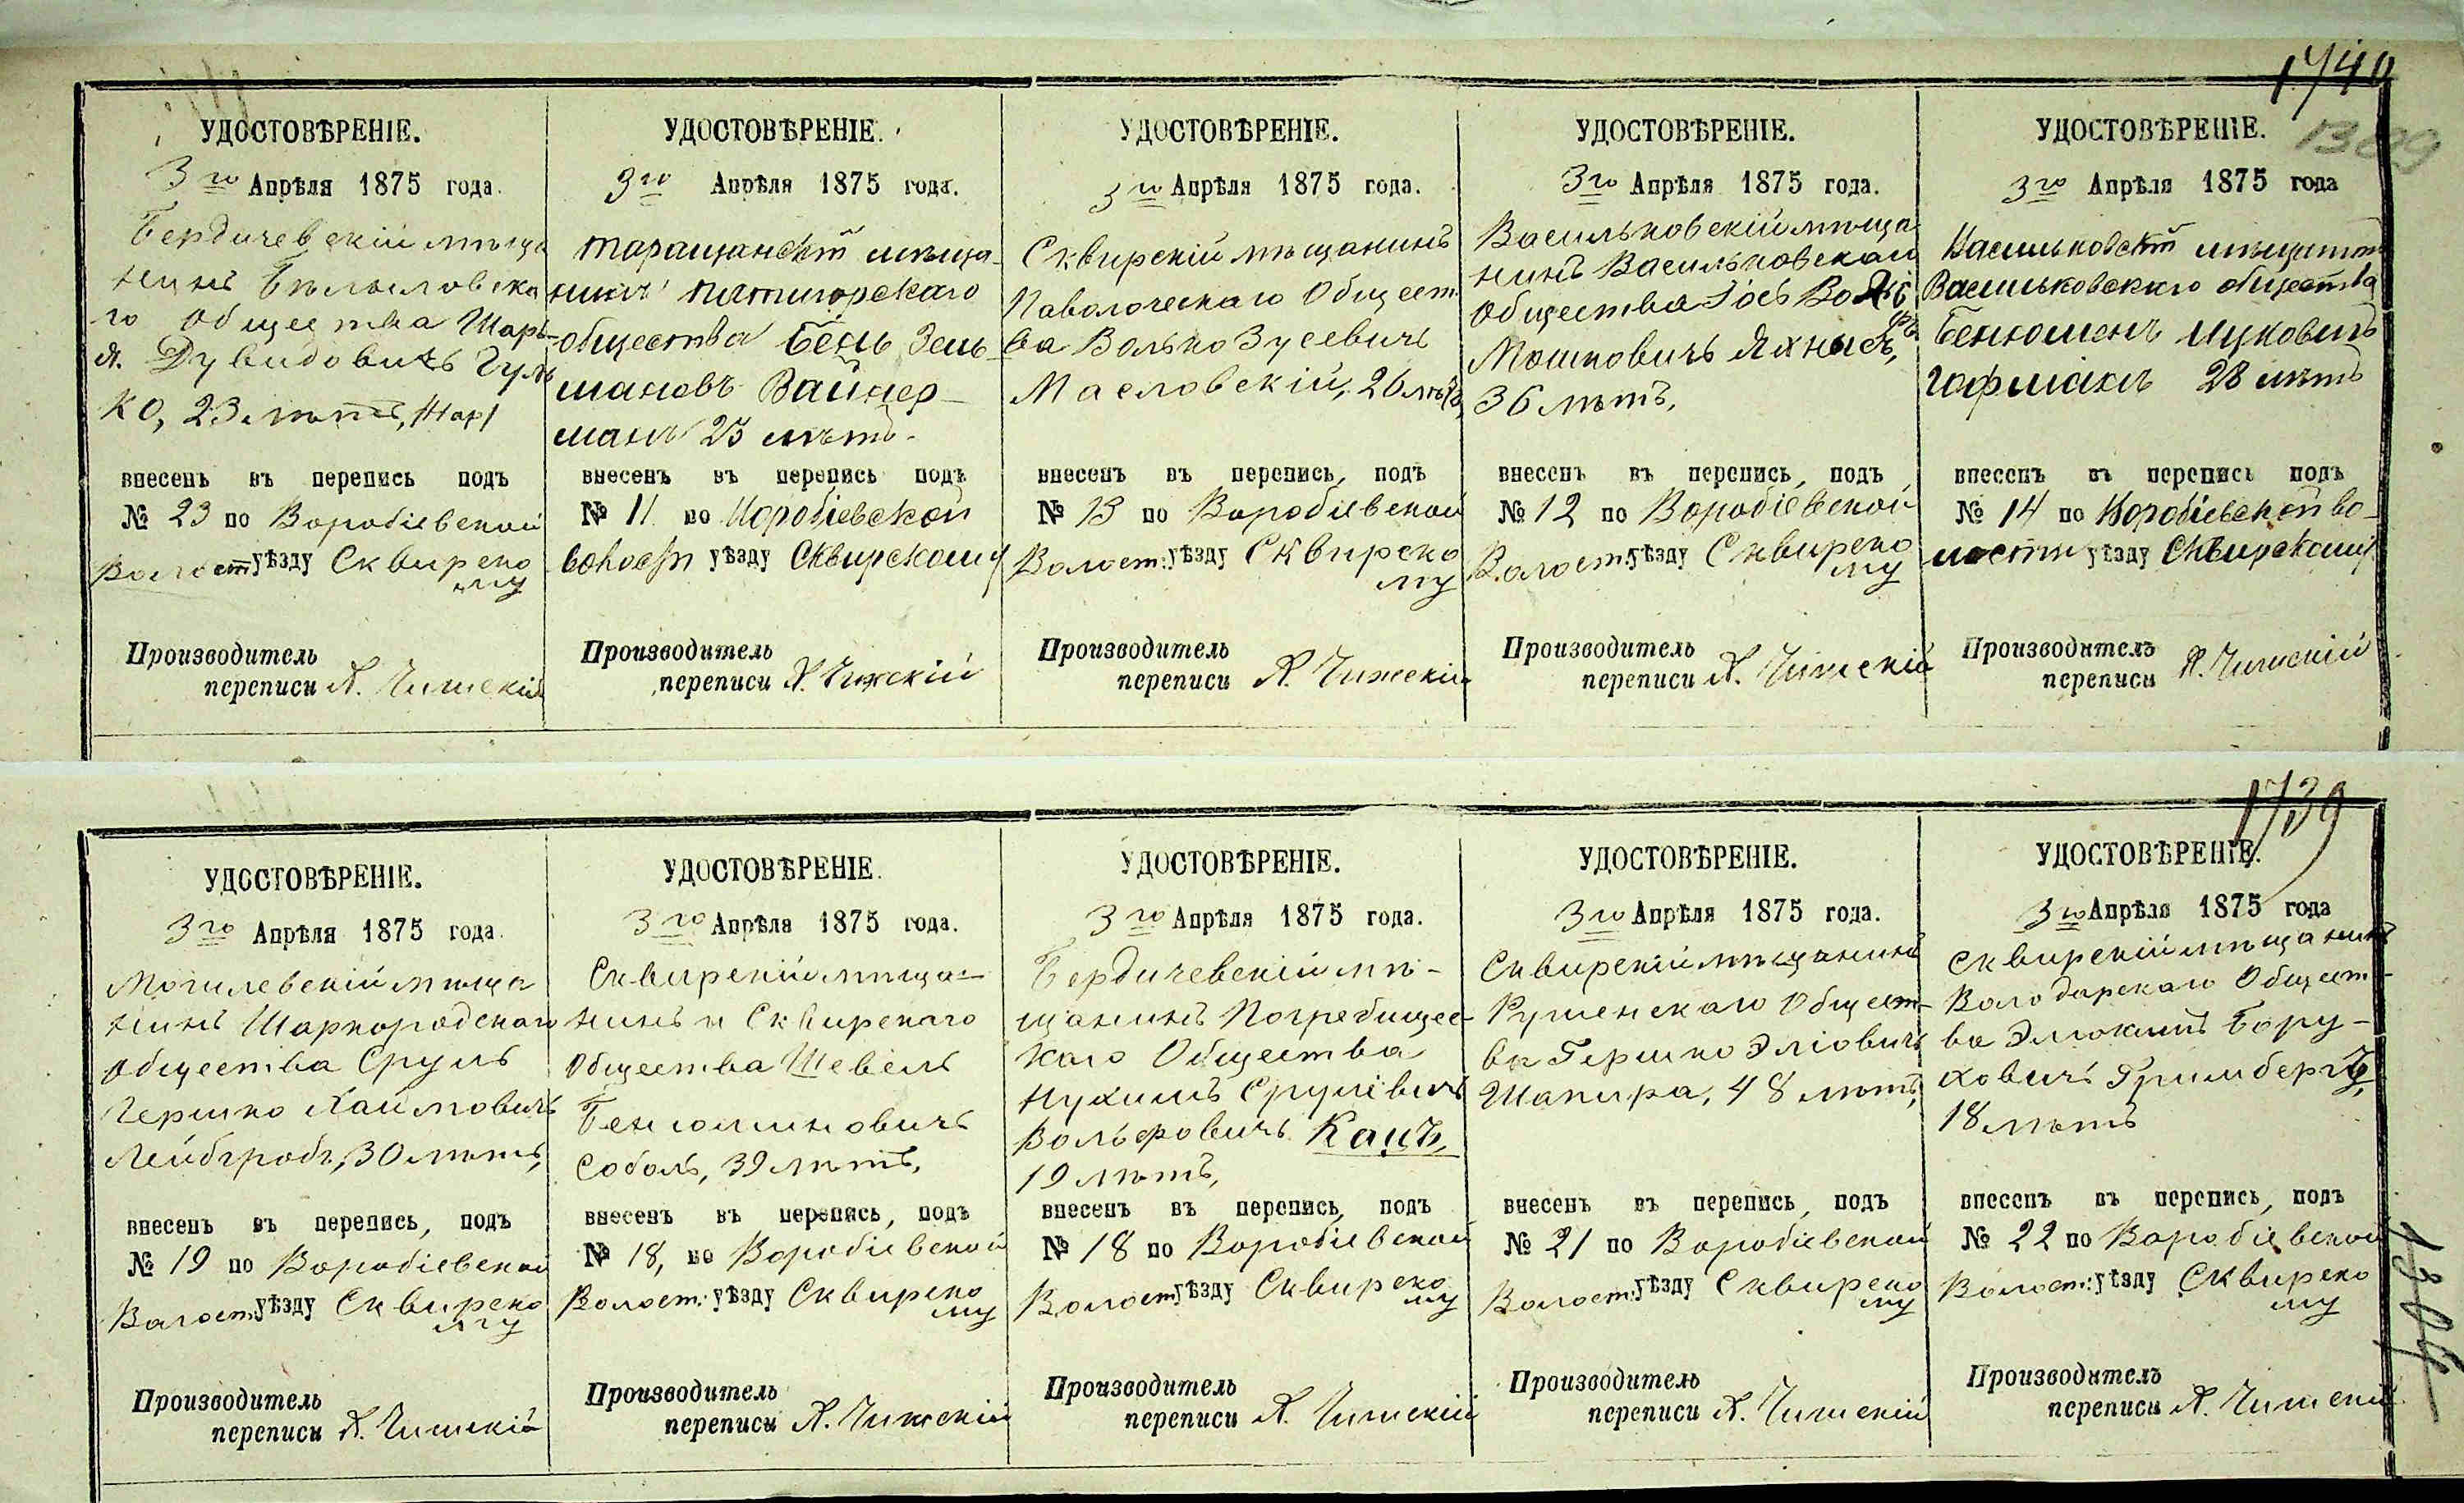 1740
1309
УДОСТОВѢРЕНІЕ.
3го Апрѣля 1875 года.
Бердичевскій мѣща
нинъ Бѣлиловска
го Общества Шары
я. Дувидовичъ Гуль
ко, 23 лѣтъ,
внесенъ въ перепись подъ
№ 23 по Воробіевской
Волост. уѣзду Сквирско
му
Производитель
переписи А. Чижскій
УДОСТОВѢРЕНІЕ.
3го Апрѣля 1875 года.
Таращанскій мѣща-
нинъ Пятигорскаго
общества Бень Зель
мановъ Вайнер-
манъ 25 лѣтъ.
внесенъ въ перепись подъ
№ 11 по Воробіевской
волости уѣзду Сквирскому
Производитель
переписи А. Чижскій
УДОСТОВѢРЕНІЕ.
3го Апрѣля 1875 года.
Сквирскій мѣщанинъ
Паволоческаго Общест
ва Волько Зусевичъ
Масловскій, 26 лѣтъ,
внесенъ въ перепись, подъ
№ 13 по Воробіевской
Волост. уѣзду Сквирско
му
Производитель
переписи А. Чижскій
УДОСТОВѢРЕНІЕ.
3го Апрѣля 1875 года.
Васильковскій мѣща
нинъ Васильковскаго
Общества Іось
Мошковичъ Яхнысъ,
36 лѣтъ,
внесенъ въ перепись, подъ
№ 12 по Воробіевской
Волост. уѣзду Сквирско
му
Производитель
переписи А. Чижскій
УДОСТОВѢРЕНІЕ.
3го Апрѣля 1875 года
Васильковскій мѣщанинъ
Васильковскаго общества
Бенюменъ Ицковичъ
Гофманъ 28 лѣтъ
внесенъ въ перепись подъ
№ 14 по Воробіевской во-
лости уѣзду Сквирскому
Производитель
переписи А. Чижскій
1739
УДОСТОВѢРЕНІЕ.
3го Апрѣля 1875 года.
Могилевскій мѣща
нинъ Шаргородскаго
Общества Сруль
Гершко Хаимовичъ
Лейбгробъ, 30 лѣтъ,
внесенъ въ перепись, подъ
№ 19 по Воробіевской
Волост. уѣзду Сквирско
му
Производитель
переписи А. Чижскій
УДОСТОВѢРЕНІЕ.
3го Апрѣля 1875 года.
Сквирскій мѣща-
нинъ и Сквирскаго
Общества Шевель
Бенюминовичъ
Соболь, 39 лѣтъ,
внесенъ въ перепись, подъ
№ 18, по Воробіевской
Волост. уѣзду Сквирско
му
Производитель
переписи А. Чижскій
УДОСТОВѢРЕНІЕ.
3го Апрѣля 1875 года.
Бердичевскій мѣ-
щанинъ Погребищес-
каго Общества
Нухимъ Срулевичъ
Вольфовичъ Кацъ,
19 лѣтъ,
внесенъ въ перепись, подъ
№ 18 по Воробіевской
Волост. уѣзду Сквирско
му
Производитель
переписи А. Чижскій
УДОСТОВѢРЕНІЕ.
3го Апрѣля 1875 года.
Сквирскій мѣщанинъ
Ружинскаго Общест-
ва Гершко Эліовичъ
Шапира, 48 лѣтъ,
внесенъ въ перепись, подъ
№ 21 по Воробіевской
Волост. уѣзду Сквирско
му
Производитель
переписи А. Чижскій
УДОСТОВѢРЕНІЕ.
3го Апрѣля 1875 года
Сквирскій мѣщанинъ
Володарскаго Общест-
ва Эльокимъ Бору-
ховичъ Гримбергъ,
18 лѣтъ
внесенъ въ перепись, подъ
№ 22 по Воробіевской
Волост. уѣзду Сквирско
му
Производитель
переписи А. Чижскій